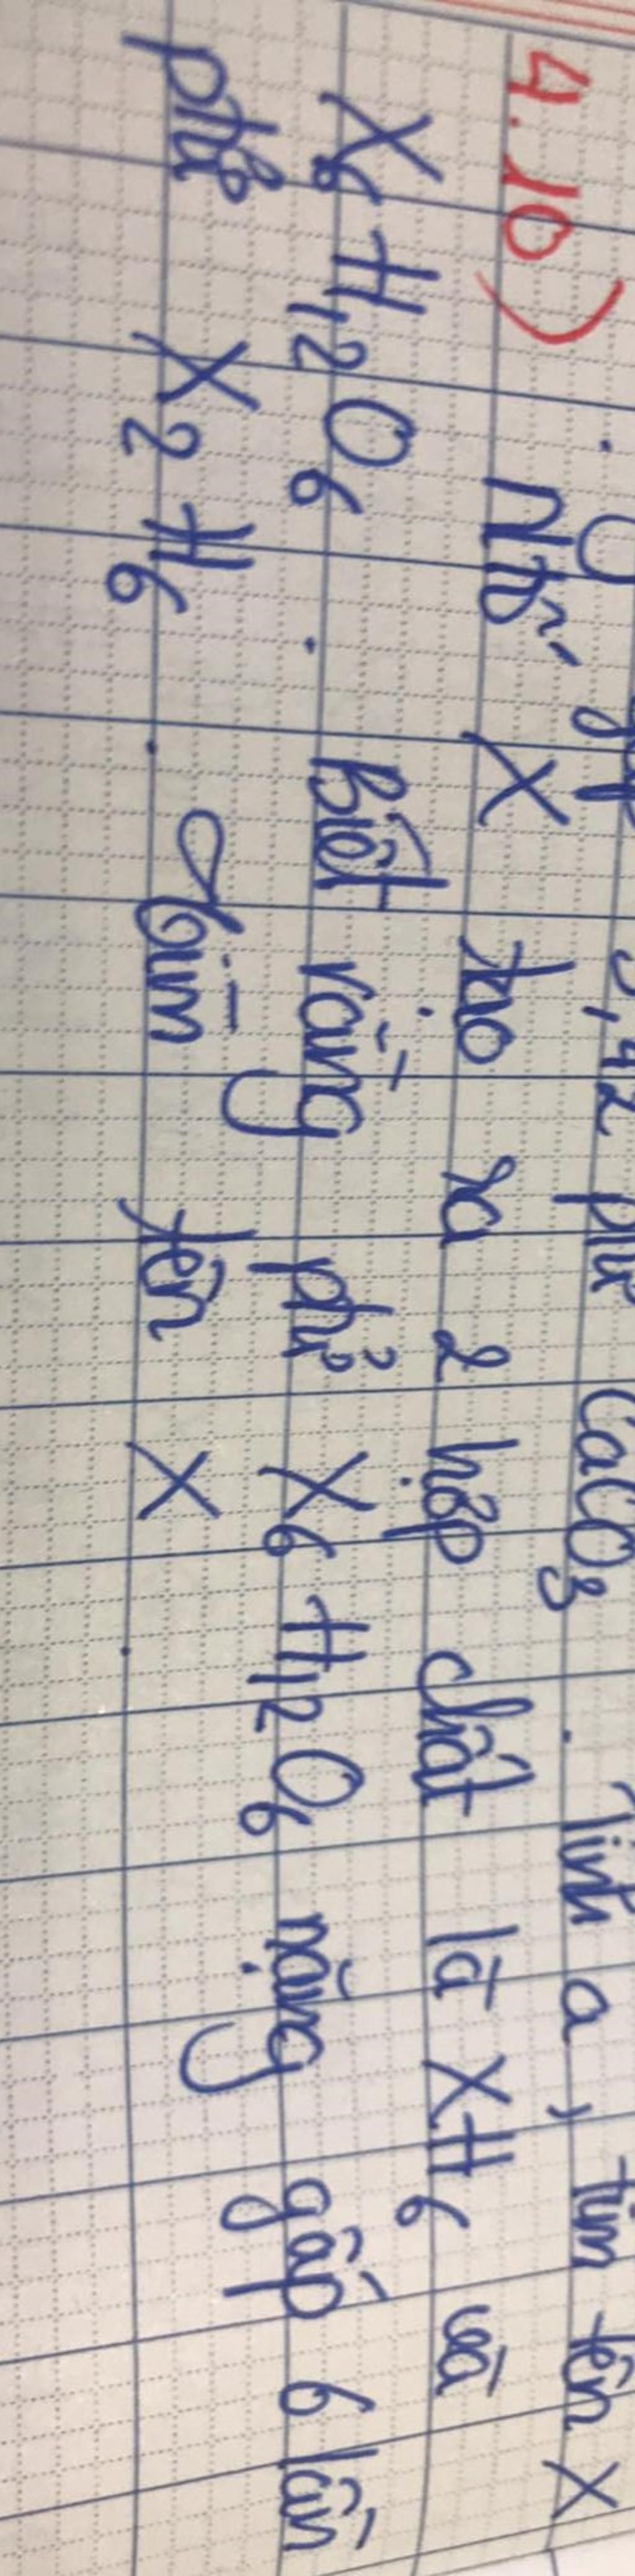 3,42 ptử CaCO3 . Tính a, tìm tên X
4.10) Ntố X tạo ra 2 hợp chất là XH6 và
X6H12O6 . Biết rằng ptử X6H12O6 nặng gấp 6 lần
ptử X2H6 . Tìm tên X .